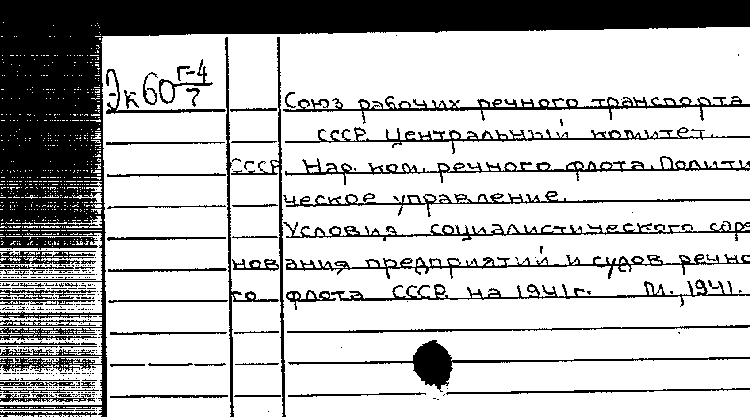 Эк60 Г-4/7
Союз рабочих речного транспорта
СССР. Центральный комитет.
СССР. Нар. ком. речного флота. Полити
ческое управление.
Условия социалистического соре
нования предприятий и судов речно
го флота СССР на 1941г. М., 1941.